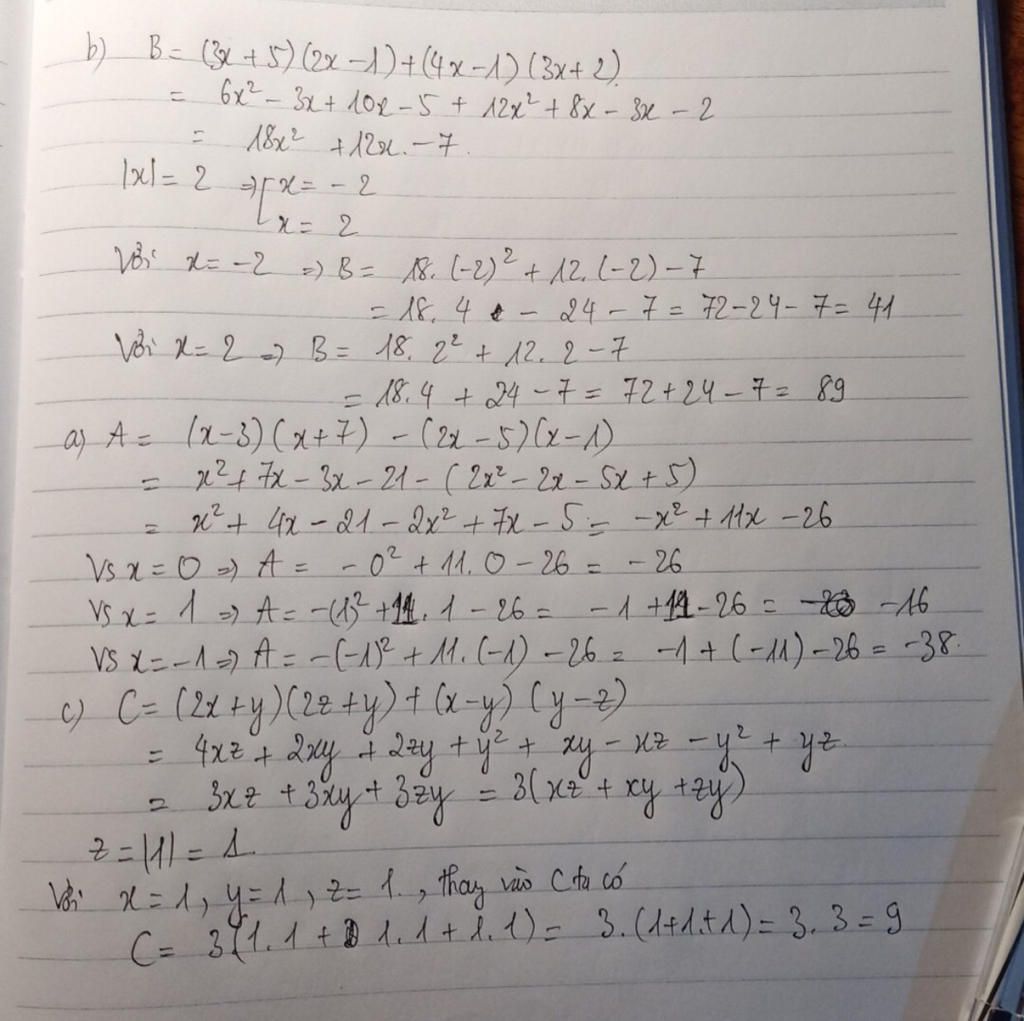 b) B = (3x + 5)(2x - 1) + (4x - 1)(3x + 2)
= 6x² - 3x + 10x - 5 + 12x² + 8x - 3x - 2
= 18x² + 12x - 7.
|x| = 2 ⇒ [ x = - 2
x = 2
Với x = -2 ⇒ B = 18. (-2)² + 12. (-2) - 7
= 18. 4 - 24 - 7 = 72 - 24 - 7 = 41
Với x = 2 ⇒ B = 18. 2² + 12. 2 - 7
= 18.4 + 24 - 7 = 72 + 24 - 7 = 89
a) A = (x-3)(x+7) - (2x - 5)(x - 1)
= x² + 7x - 3x - 21 - (2x² - 2x - 5x + 5)
= x² + 4x - 21 - 2x² + 7x - 5 = -x² + 11x - 26
Vs x = 0 ⇒ A = - 0² + 11. 0 - 26 = - 26
Vs x = 1 ⇒ A = -(1)² + 11. 1 - 26 = - 1 + 11 - 26 = - 16
Vs x = -1 ⇒ A = -(-1)² + 11. (-1) - 26 = -1 + (-11) - 26 = -38.
c) C = (2x + y)(2z + y) + (x - y) (y - z)
= 4xz + 2xy + 2zy + y² + xy - xz - y² + yz.
= 3xz + 3xy + 3zy = 3(xz + xy + zy)
z = |1| = 1
Với x = 1, y = 1, z = 1., thay vào C ta có
C = 3(1. 1 + 1. 1 + 1. 1) = 3. (1+1+1) = 3. 3 = 9